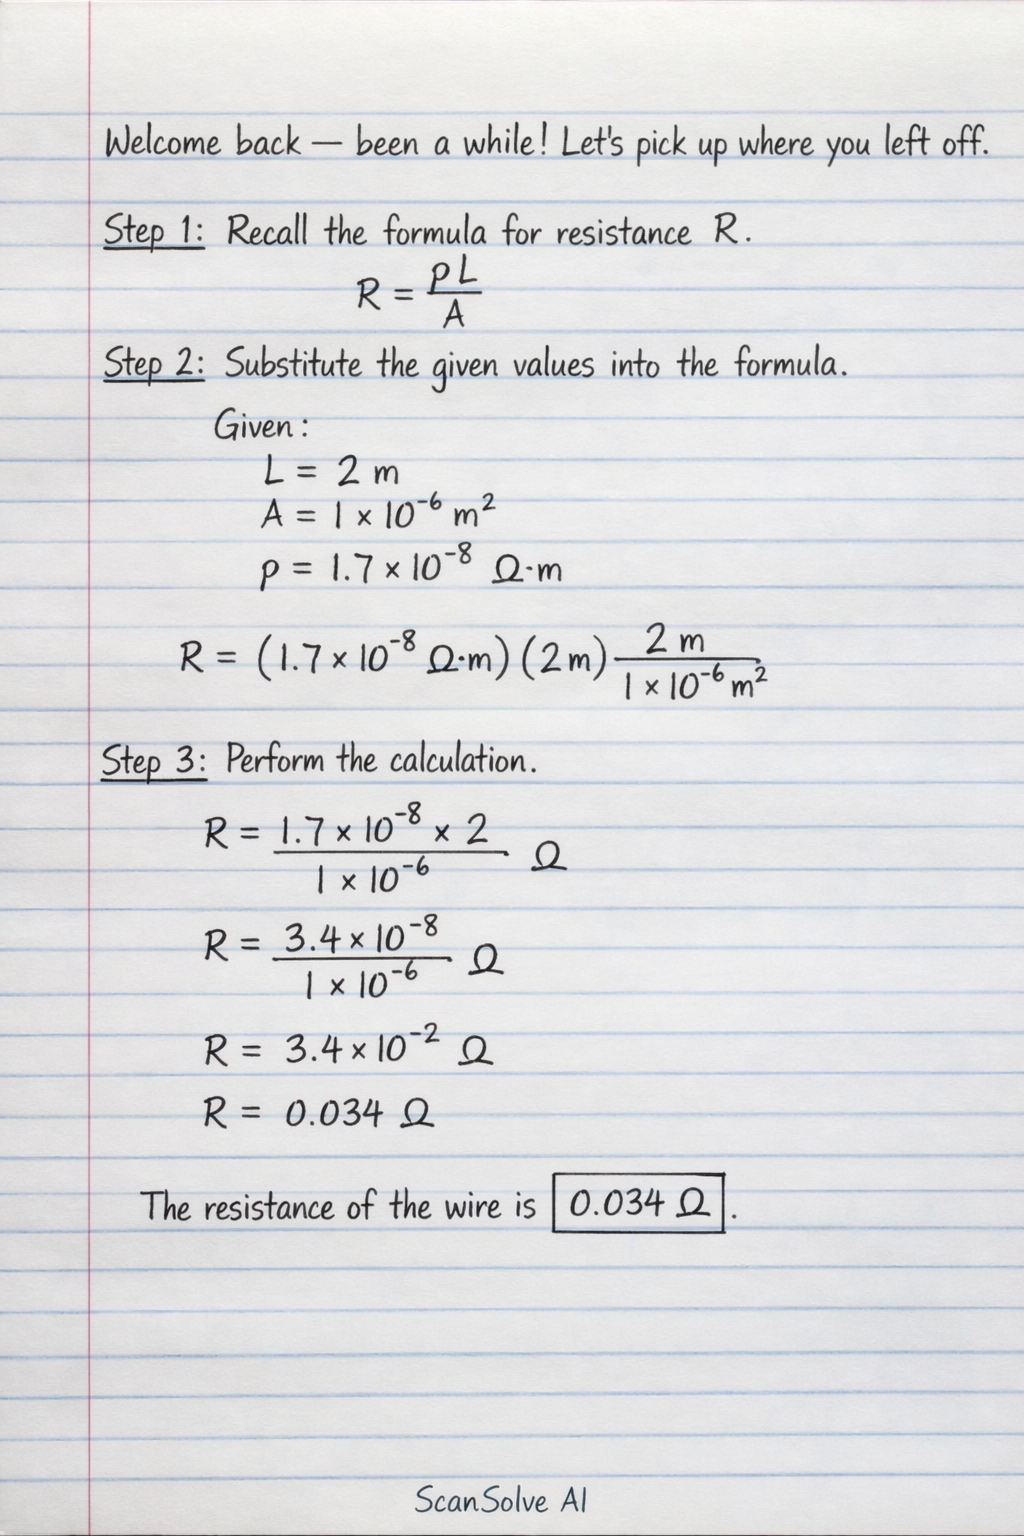 Welcome back — been a while! Let's pick up where you left off.
Step 1: Recall the formula for resistance R.
R = ρL / A
Step 2: Substitute the given values into the formula.
Given:
L = 2 m
A = 1 × 10⁻⁶ m²
ρ = 1.7 × 10⁻⁸ Ω·m
R = (1.7 × 10⁻⁸ Ω·m) (2m) 2 m / 1 × 10⁻⁶ m²
Step 3: Perform the calculation.
R = 1.7 × 10⁻⁸ × 2 / 1 × 10⁻⁶ Ω
R = 3.4 × 10⁻⁸ / 1 × 10⁻⁶ Ω
R = 3.4 × 10⁻² Ω
R = 0.034 Ω
The resistance of the wire is 0.034 Ω.
ScanSolve AI